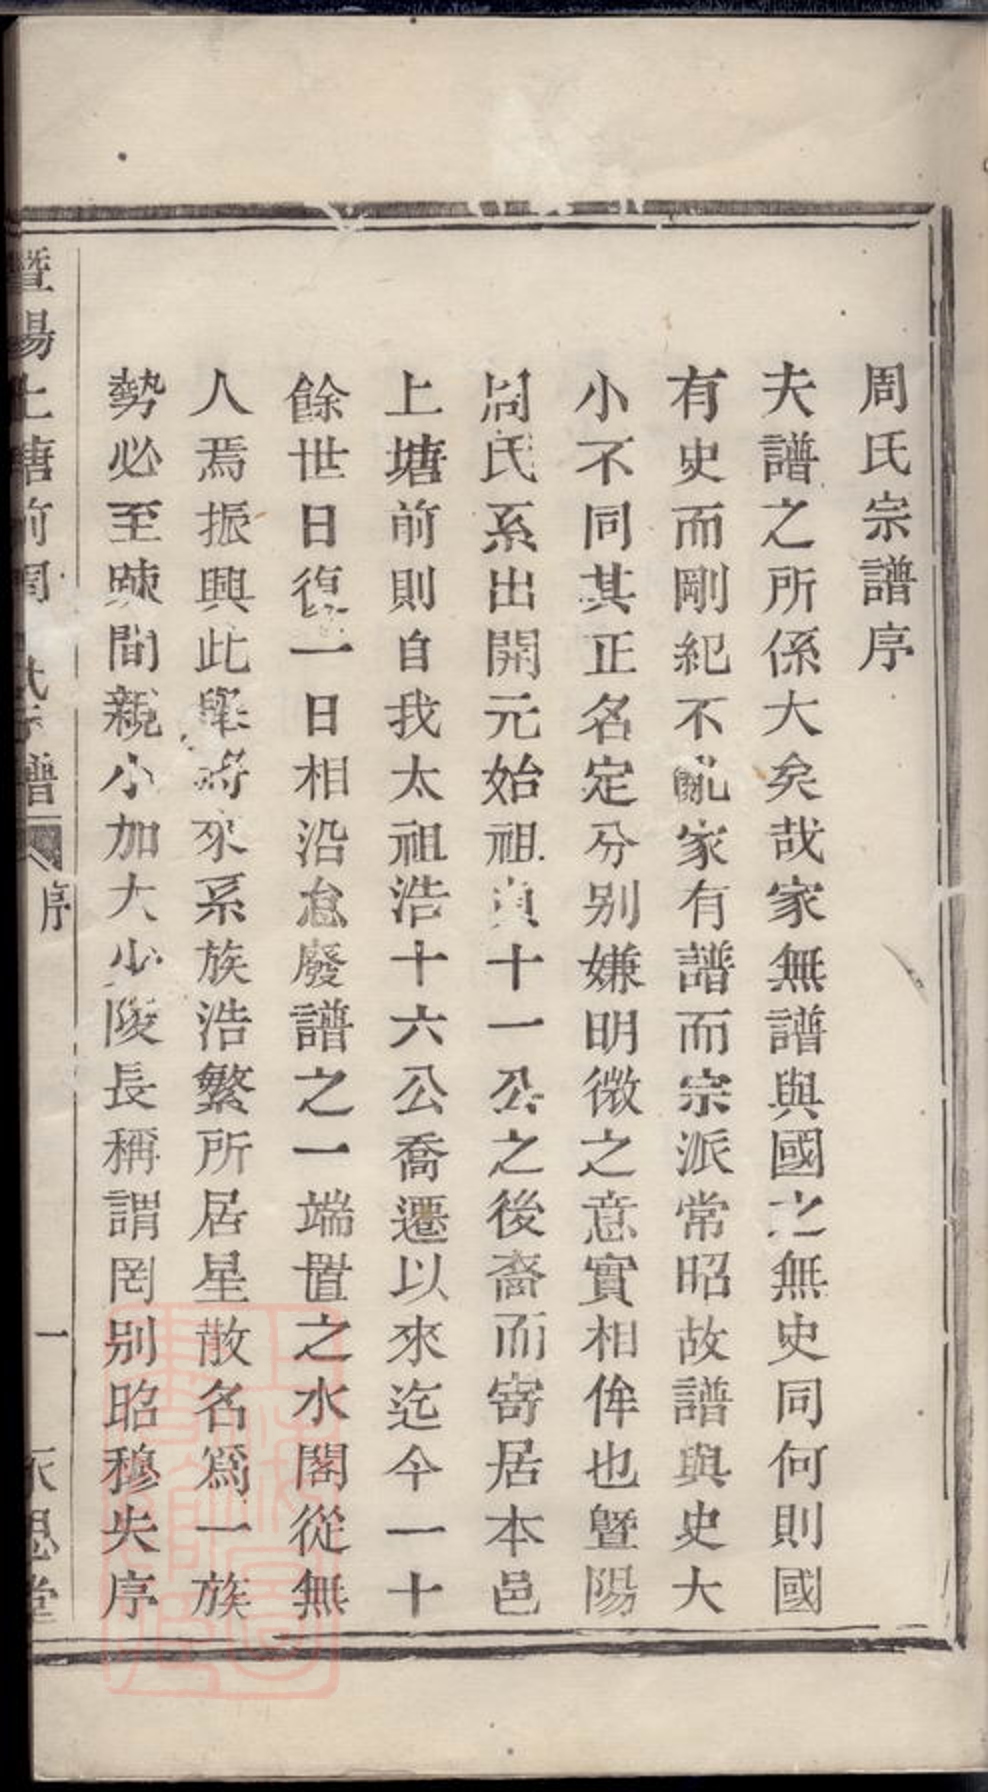 周氏宗譜序
夫譜之所係大矣哉家無譜與國之無史同何則國
有史而剛紀不亂家有譜而宗派常昭故譜與史大
小不同其正名定分別嫌明微之意實相侔也暨陽
周氏系出開元始祖貞十一公之後裔而寄居本邑
上塘前則自我太祖浩十六公喬遷以來迄今一十
餘世日復一日相沿怠廢譜之一端置之水閣從無
人焉振興此舉將來系族浩繁所居星散名爲一族
勢必至踈間親小加大少陵長稱謂罔別昭穆失序
暨陽上塘前周氏宗譜 序 一 永思堂
上海圖書館藏